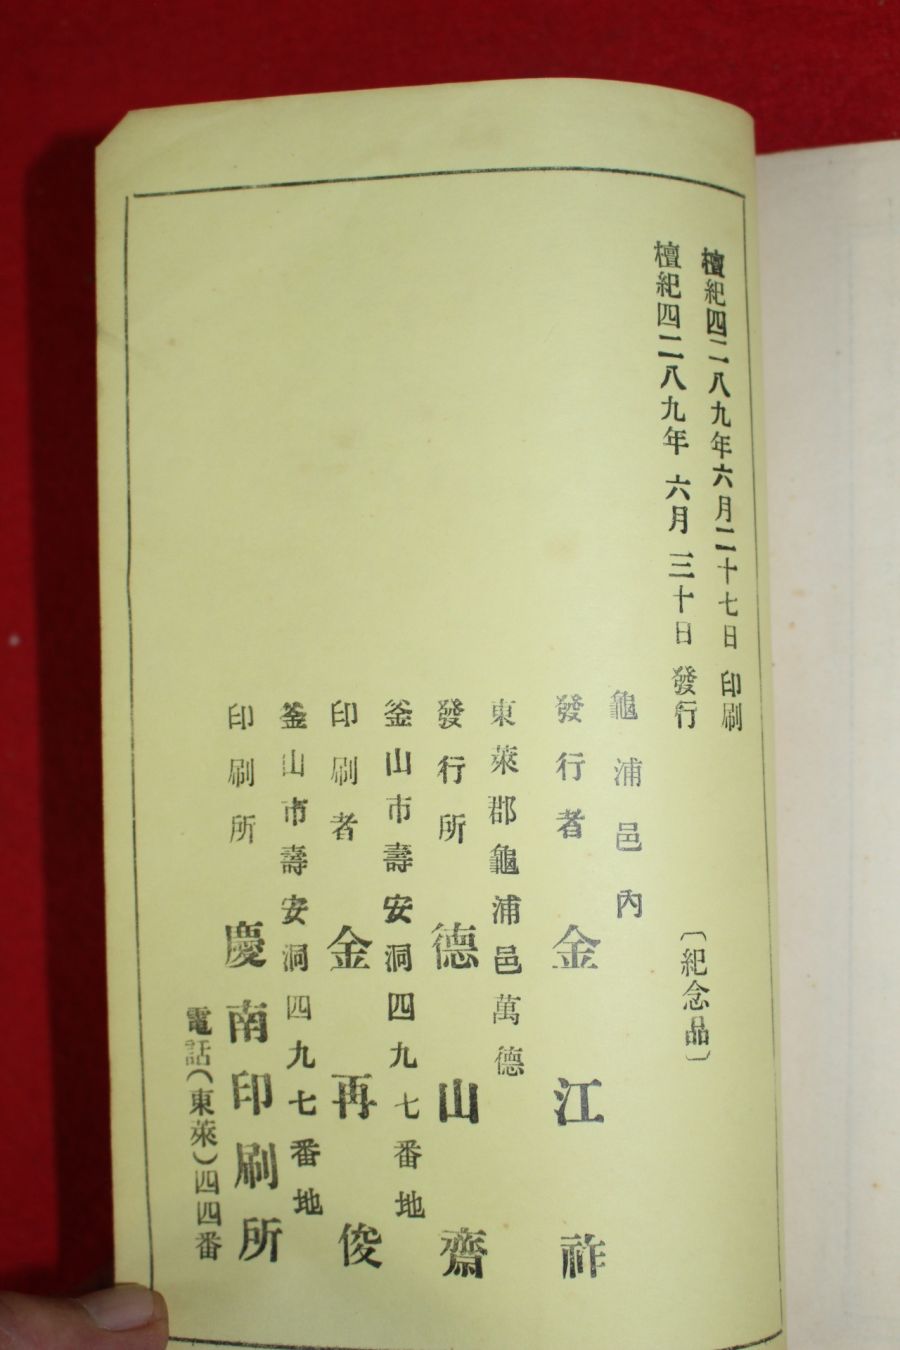 檀紀四二八九年六月二十七日 印刷
檀紀四二八九年 六月 三十日 發行
〔紀念品〕
龜浦邑內
發行者 金江祚
東萊郡龜浦邑萬德
發行所 德山齋
釜山市壽安洞四九七番地
印刷者 金再俊
釜山市壽安洞四九七番地
印刷所 慶南印刷所
電話(東萊)四四番